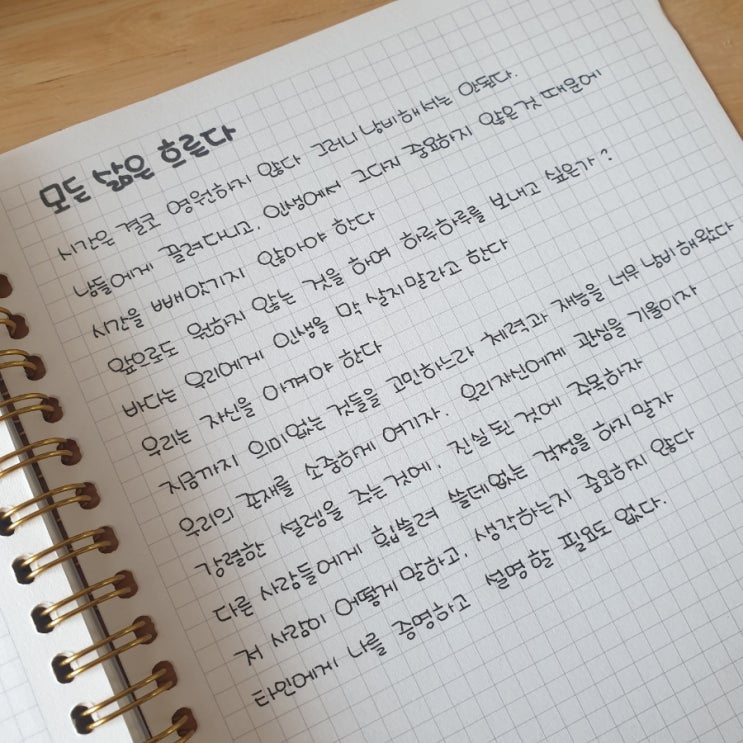 모든 삶은 흐른다
시간은 결코 영원하지 않다 그러니 낭비해서는 안된다.
남들에게 끌려다니고, 인생에서 그다지 중요하지 않은것 때문에
시간을 빼앗기지 않아야 한다
앞으로도 원하지 않는 것을 하며 하루하루를 보내고 싶은가?
바다는 우리에게 인생을 막 살지말라고 한다
우리는 자신을 아껴야 한다
지금까지 의미없는 것들을 고민하느라 체력과 재능을 너무 낭비해왔다
우리의 존재를 소중하게 여기자. 우리자신에게 관심을 기울이자
강렬한 설렘을 주는것에, 진실된 것에 주목하자
다른 사람들에게 휩쓸려 쓸데없는 걱정을 하지말자
저 사람이 어떻게 말하고, 생각하는지 중요하지 않다
타인에게 나를 증명하고 설명할 필요도 없다.